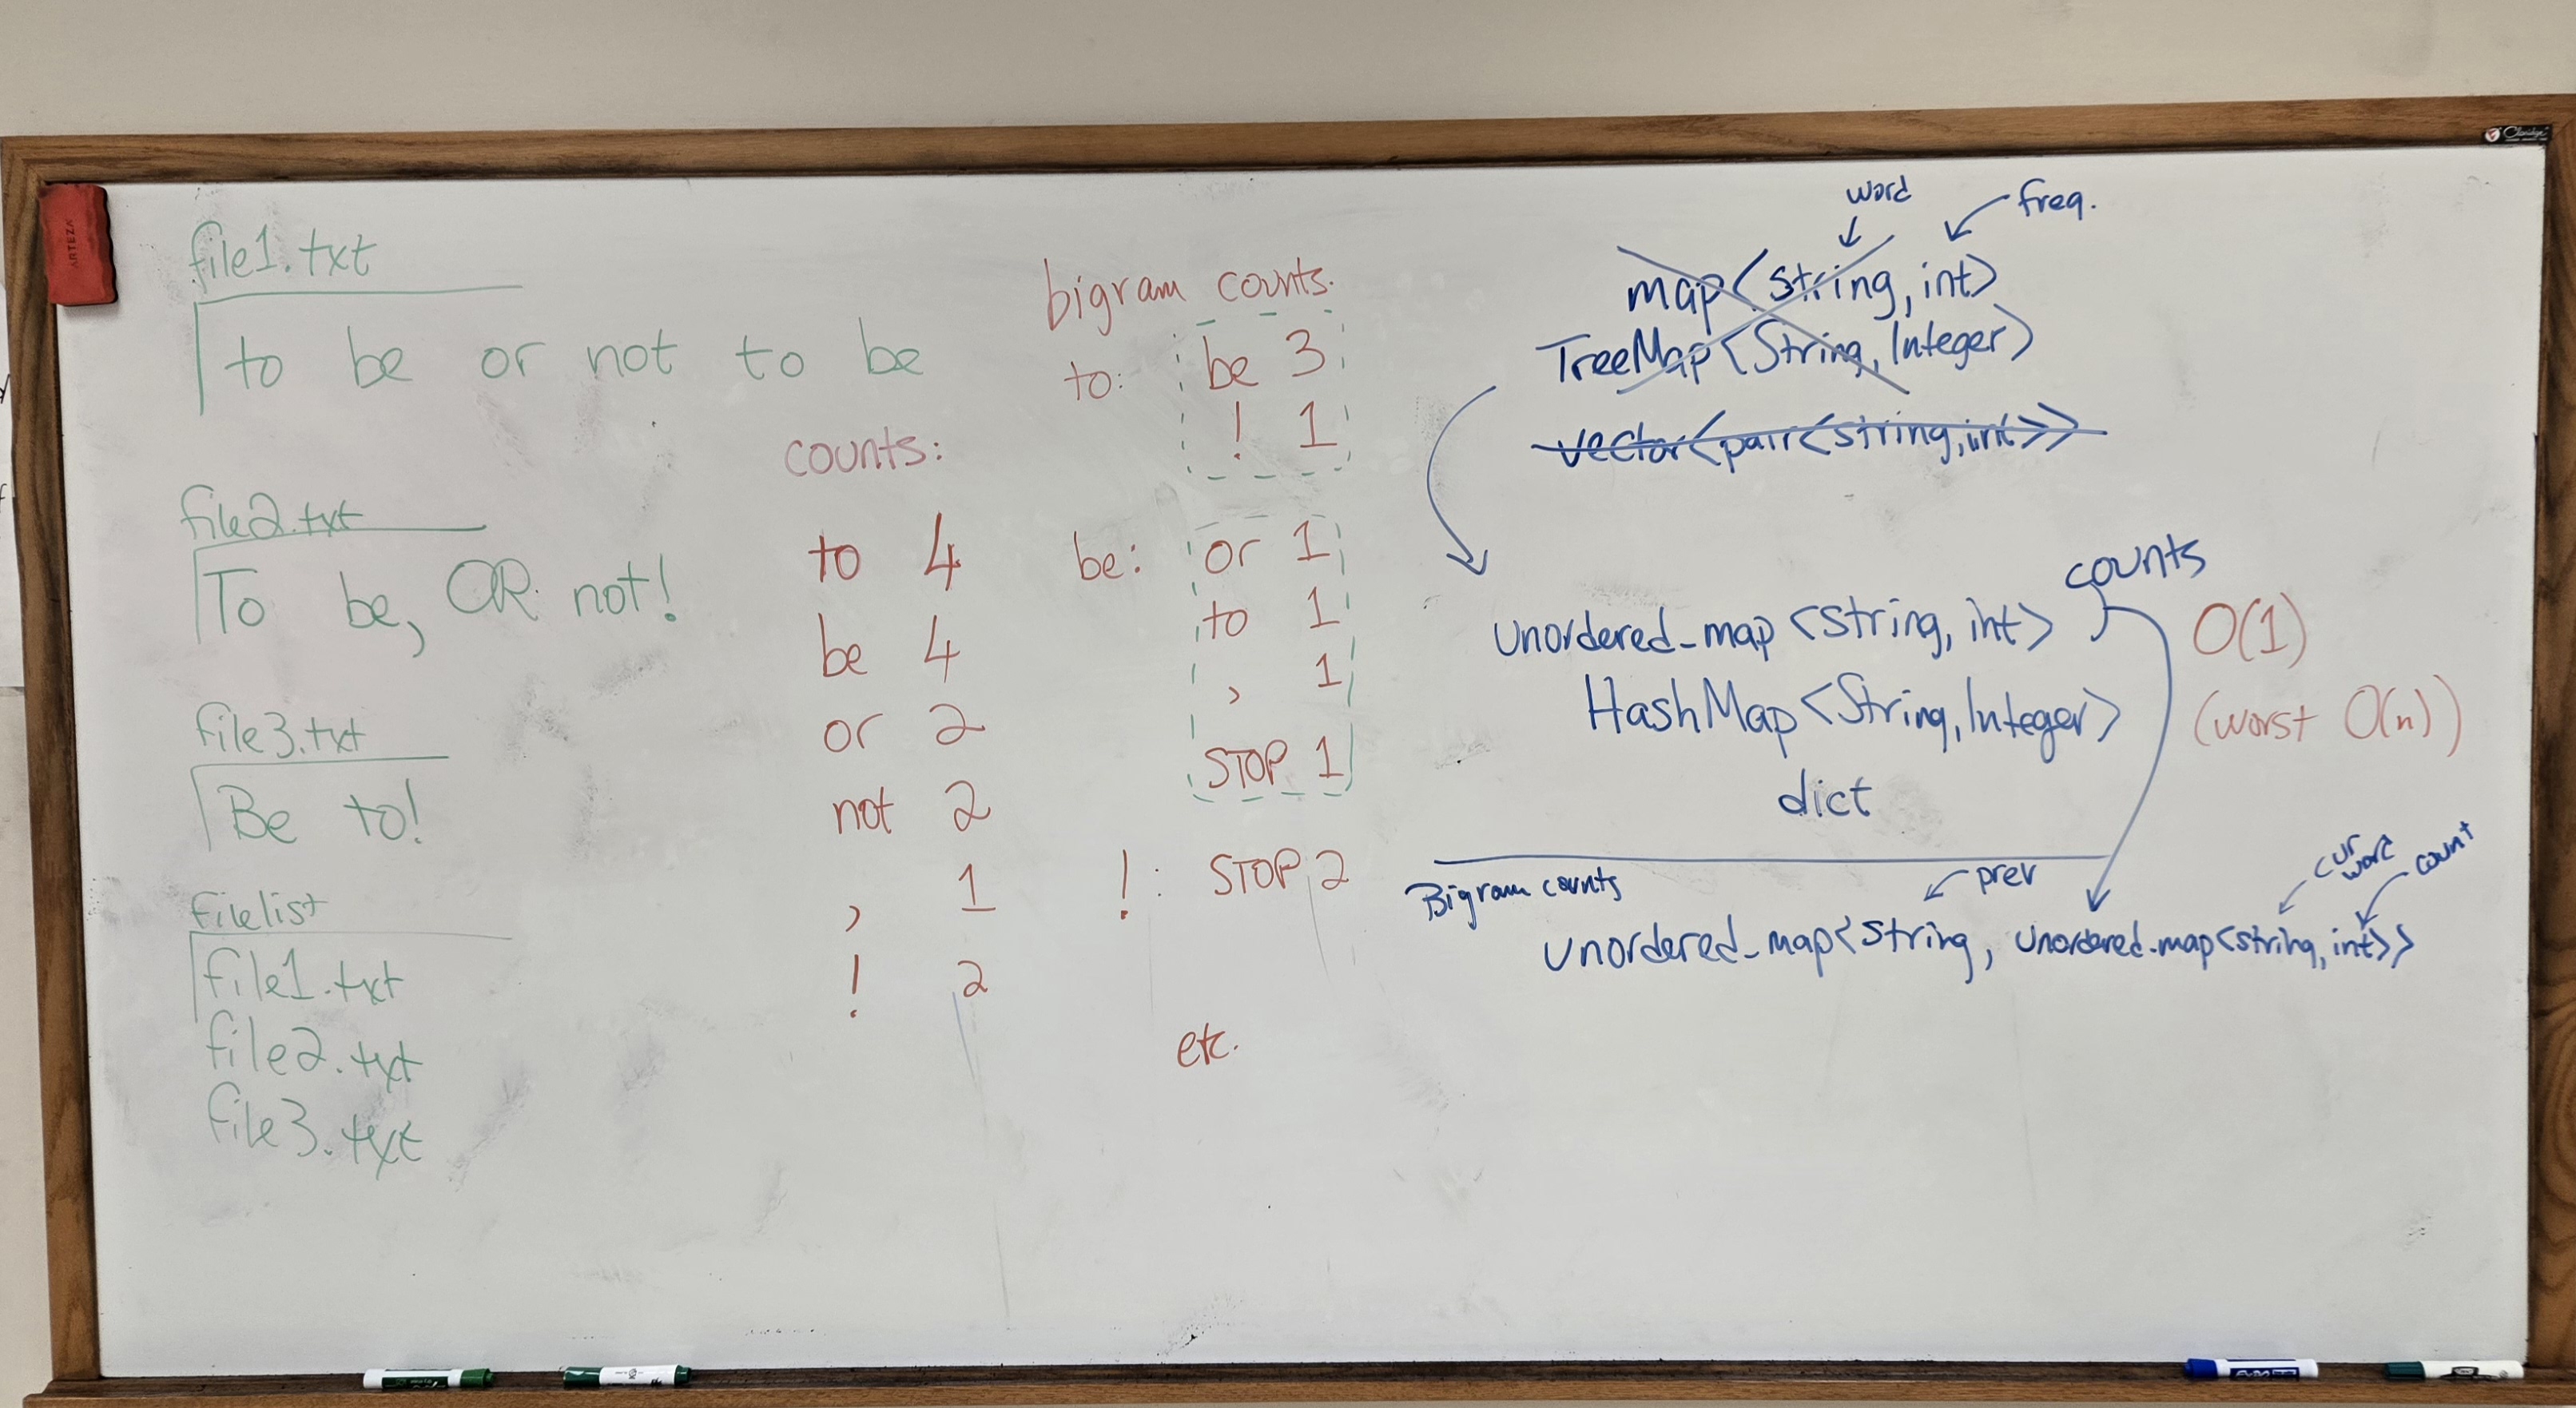 file1.txt
to be or not to be
file2.txt
To be, OR not!
file3.txt
Be to!
filelist
file1.txt
file2.txt
file3.txt
counts:
to 4
be 4
or 2
not 2
, 1
! 2
bigram counts.
to: be 3
! 1
be: or 1
to 1
, 1
STOP 1
! : STOP 2
etc.
word
freq.
map<string, int>
TreeMap<String, Integer>
vector<pair<string, int>>
counts
unordered_map<string, int>
O(1)
HashMap<String, Integer>
(worst O(n))
dict
Bigram counts
prev
cur word
count
unordered_map<string, unordered_map<string, int>>
ARTEZA
Claridge